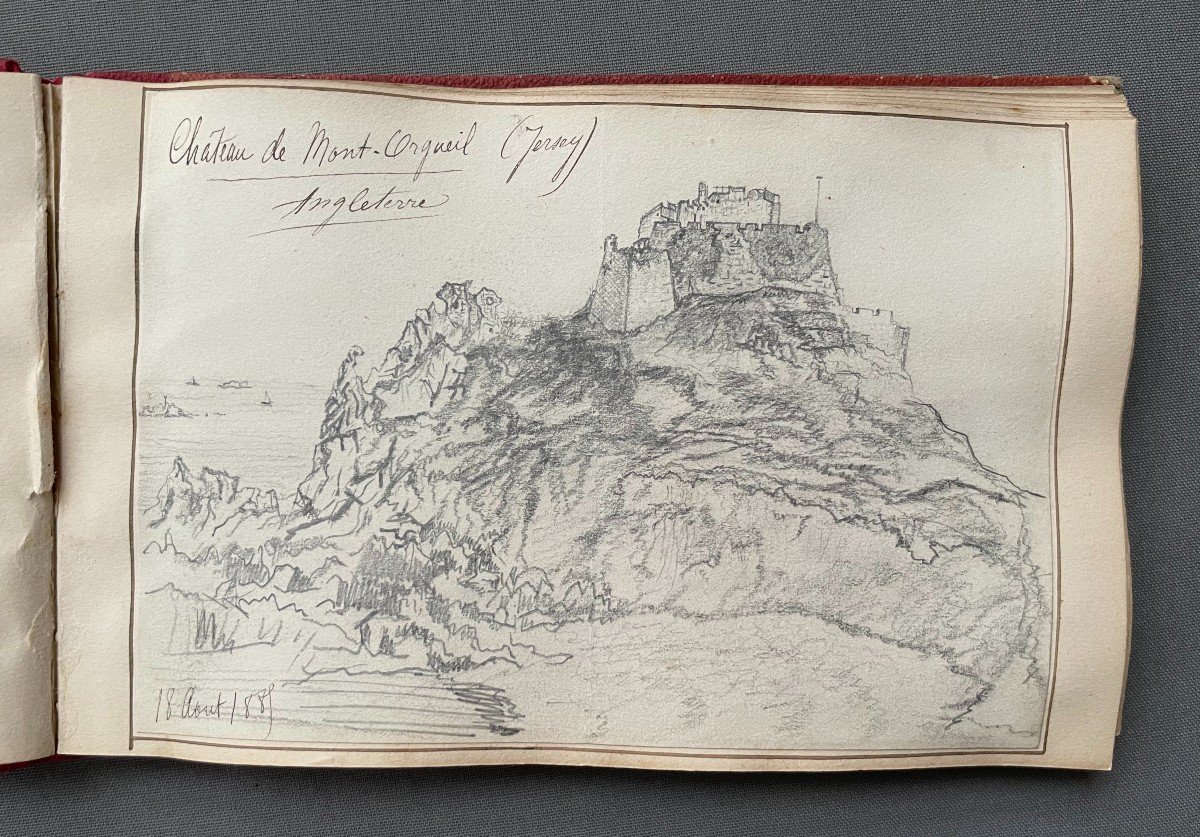 Château de Mont-Orgueil (Jersey)
Angleterre
18 Aout 1885